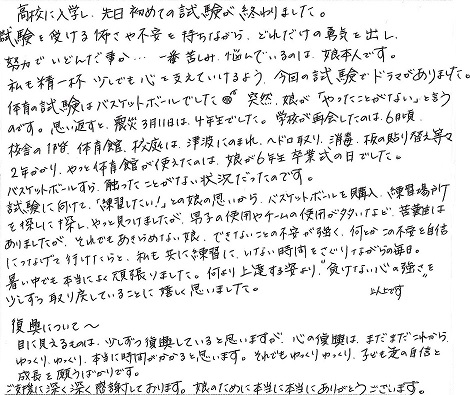 高校に入学し、先日初めての試験が終わりました。
試験を受ける怖さや不安を持ちながら、どれだけの勇気を出し、
努力でいどんだ事か… 一番苦しみ、悩んでいるのは、娘本人です。
私も精一杯 少しでも心を支えていけるよう、今回の試験でドラマがありました。
体育の試験はバスケットボールでした 突然、娘が「やったことがない」と言う
のです。思い返すと、震災3月11日は、4年生でした。学校が再会したのは、6月頃
校舎の1階、体育館、校庭は、津波にのまれ、ヘドロ取り、消毒、板の貼り替え等々
2年かかり、やっと体育館が使えたのは、娘が6年生 卒業式の日でした。
バスケットボールすら、触ったことがない状況だったのです。
試験に向けて、「練習したい!」との娘の思いから、バスケットボールを購入、練習場所
を探しに探し、やっと見つけましたが、男子の使用やチームの使用が多いなど、苦戦は
ありましたが、それでもあきらめない娘、できないことの不安が強く、何とかこの不安を自信
につなげて行けたらと、私も共に練習に、いない時間をさぐりながらの毎日。
暑い中でも本当によく頑張りました。何より上達する姿より、"負けない心の強さ"を
少しずつ取り戻していることに嬉しく思いました。
復興について〜
目に見えるものは、少しずつ復興していると思いますが、心の復興は、まだまだこれから、
ゆっくり、ゆっくり、本当に時間がかかると思います。それでもゆっくりゆっくり、子ども達の自信と
成長を願うばかりです。
ご支援に深く深く感謝しております。娘のために本当に本当にありがとうございます。